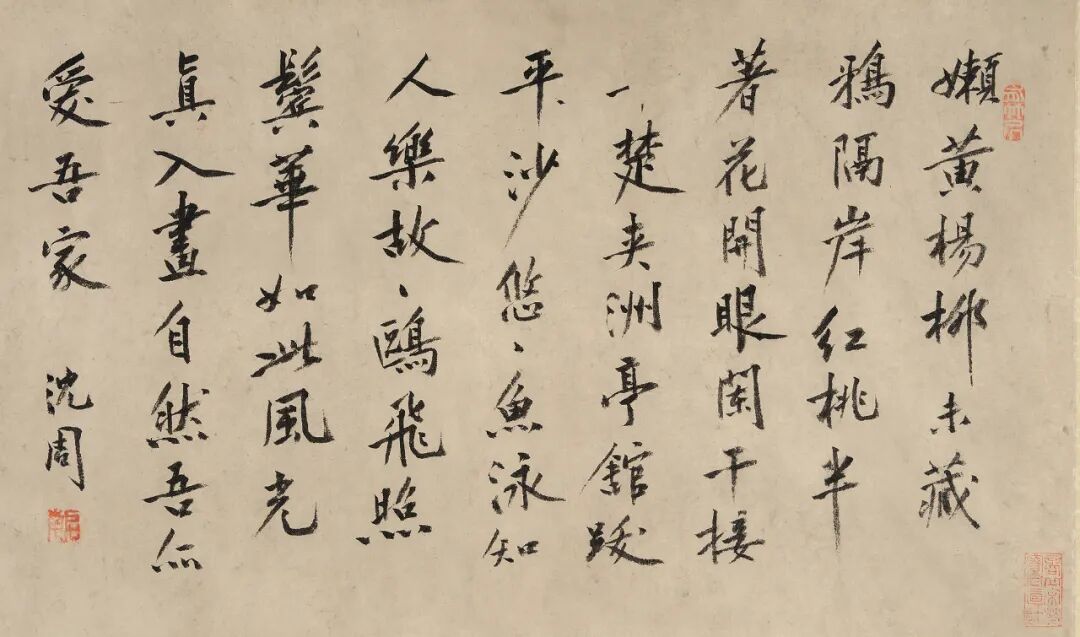 嬾黃楊柳未藏
鴉隔岸紅桃半
著花開眼闌干接
一楚夾洲亭館跋
平沙悠〻魚泳知
人樂故〻鷗飛照
鬢華如此風光
眞入畫自然吾亦
愛吾家 沈周